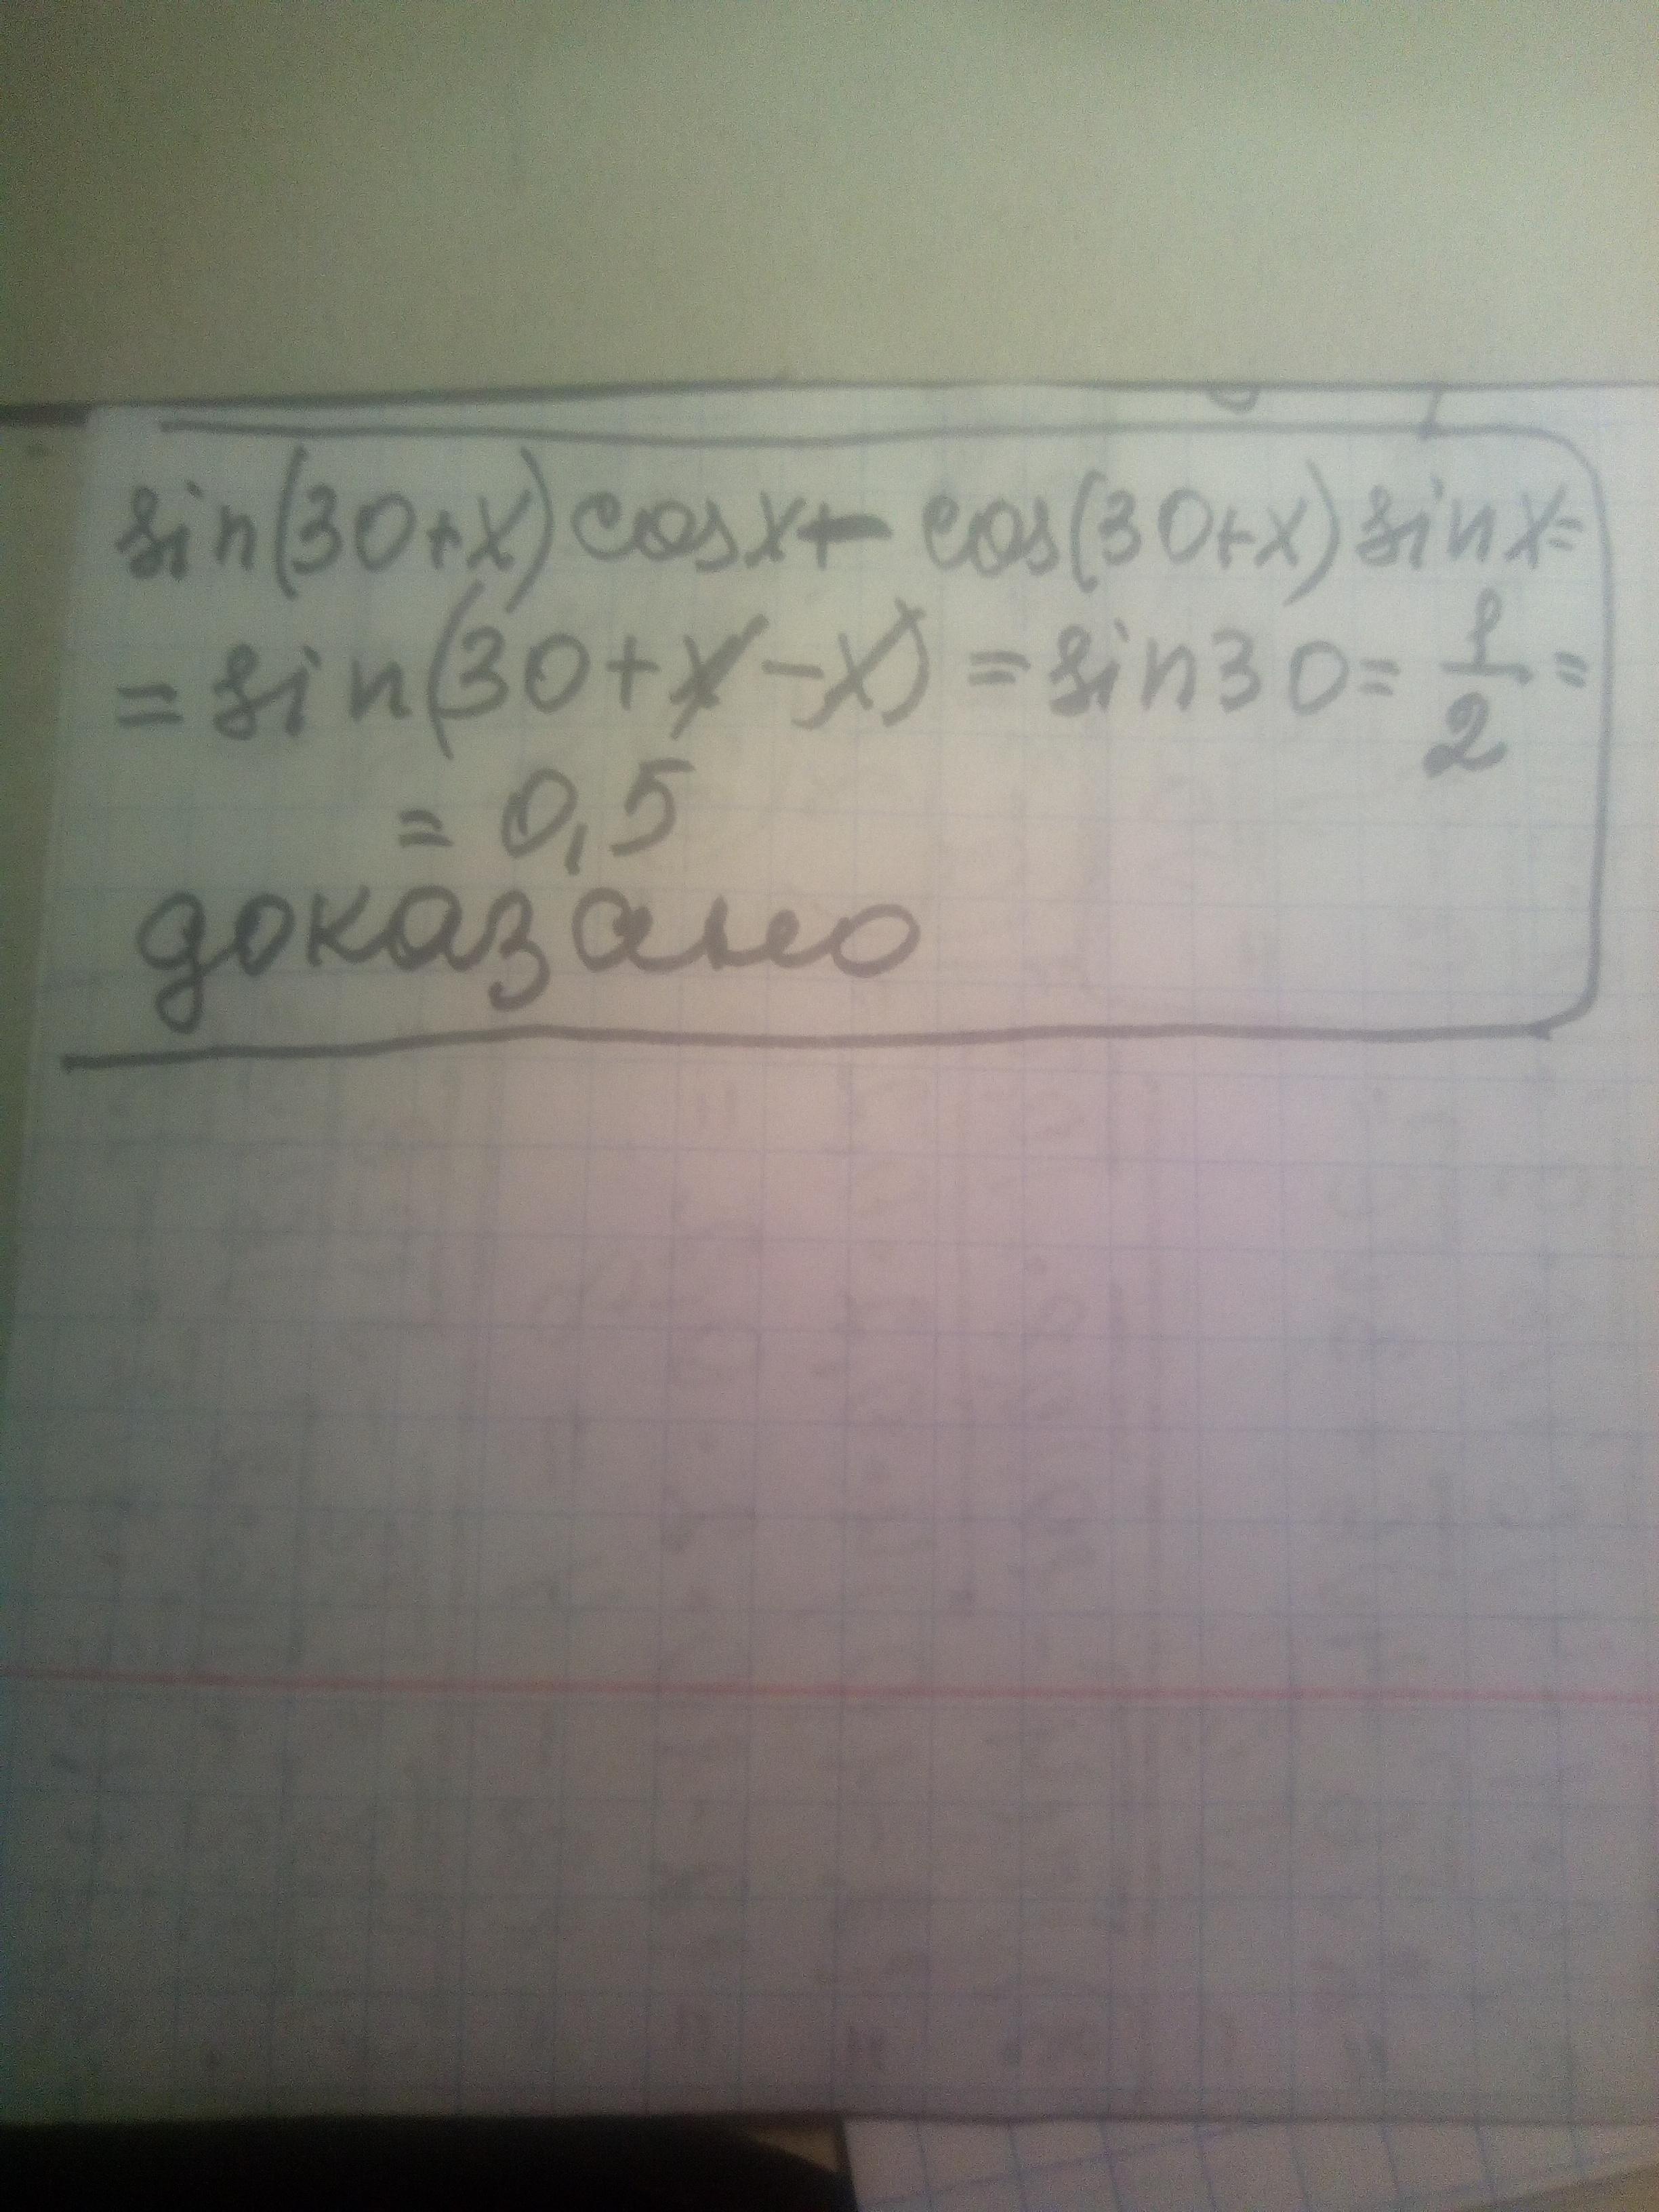 sin(30+x)cosx - cos(30+x)sinx=
= sin(30+x-x) = sin30 = 1/2 =
= 0,5
доказано